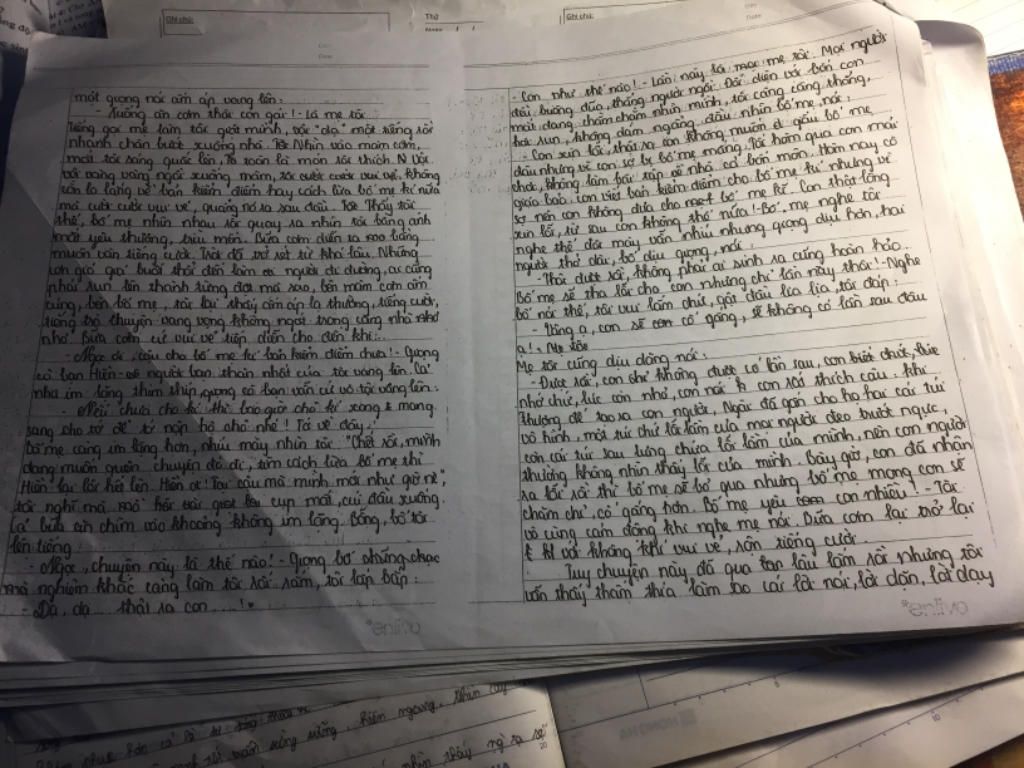 Ghi chú:
Thứ
Ghi chú:
một giọng nói ấm áp vang lên:
- Xuống ăn cơm thôi con gái! - Là mẹ tôi.
Tiếng gọi mẹ làm tôi giật mình, tôi "dạ" một tiếng rồi
nhanh chân bước xuống nhà. Nhìn vào mâm cơm,
mắt tôi sáng quắc lên, toàn là món tôi thích.
vội vàng ngồi xuống mâm, tôi cười cười vui vẻ, không
còn lo lắng về bản kiểm điểm hay cách lừa bố mẹ kí nữa
mà cười cười vui vẻ, quẳng nó ra sau đầu. Thấy tôi
thế, bố mẹ nhìn nhau rồi quay ra nhìn tôi bằng ánh
mắt yêu thương, trìu mến. Bữa cơm diễn ra
muôn vàn tiếng cười. Trời đã trở rét từ khá lâu. Những
cơn gió buổi tối đến làm người đi đường, ai cũng
phải run lên thành từng đợt mà sao, bên mâm cơm ấm
cúng, bên bố mẹ, tôi lại thấy ấm áp lạ thường, tiếng cười,
tiếng trò chuyện vang vọng không ngớt trong căn nhà nhỏ
nhỏ. Bữa cơm cứ vui vẻ tiếp diễn cho đến khi...
- Ngọc ơi, cậu cho bố mẹ kí bản kiểm điểm chưa! - Giọng
cô bạn Hiền - người bạn thân nhất của tôi vang lên. Cả
nhà im lặng thin thít, giọng cô bạn vẫn cứ vô tội vang lên:
- Nếu chưa cho kí thì bao giờ cho kí xong & mang
sang cho tớ để tớ nộp hộ cho nhé! Tớ về đây!
Bố mẹ càng im lặng hơn, nhíu mày nhìn tôi. "Chết rồi, mình
đang muốn quên chuyện đó đi, tìm cách lừa bố mẹ thì
Hiền lại lôi hết lên. Hiền ơi! Tại cậu mà mình mới như giờ nè",
tôi nghĩ mà mồ hôi cụp mắt, cúi đầu xuống.
Cả bữa ăn chìm vào khoảng không im lặng. Bỗng, bố tôi
lên tiếng:
- Ngọc, chuyện này là thế nào! - Giọng bố nhưng
mà nghiêm khắc càng làm tôi tôi lắp bắp:
- Dạ, dạ thật ra con.....!
- Con như thế nào! - Lần này là mẹ tôi. Mọi người
đều buông đũa, thẳng người ngồi. Đối diện với bốn con
mắt đang chăm chăm nhìn mình, tôi càng căng thẳng,
hơi run, không dám ngẩng đầu nhìn bố mẹ, nói:
- Con xin lỗi, thật ra con không muốn giấu bố mẹ
đâu nhưng vì con sợ bị bố mẹ mắng. Tối hôm qua con mải
chơi, không làm bài tập về nhà cả bốn môn. Hôm nay cô
giáo bảo con viết bản kiểm điểm cho bố mẹ kí nhưng vì
sợ nên con không đưa cho bố mẹ kí. Con thật lòng
xin lỗi, từ sau con không thế nữa! - Bố, mẹ nghe tôi
nghe thế đôi mày vẫn nhíu nhưng giọng dịu hơn, hai
người thở dài, bố dịu giọng, nói:
- Thôi được rồi, không phải ai sinh ra cũng hoàn hảo.
Bố mẹ sẽ tha lỗi cho con nhưng chỉ lần này thôi! - Nghe
bố nói thế, tôi vui lắm chứ, gật đầu lia lịa, tôi đáp:
- Vâng ạ, con sẽ cố gắng, sẽ không có lần sau đâu
ạ!
Mẹ tôi cũng dịu dàng nói:
- Được rồi, con chứ không được có lần sau, con biết chứ,
nhớ chứ, lúc còn nhỏ, con nói con rất thích câu: Khi
thượng đế tạo ra con người, Ngài đã gắn cho họ hai cái túi
vô hình, một túi chứ lỗi lầm của mọi người đeo trước ngực,
còn cái túi sau lưng chứa lỗi lầm của mình, nên con người
thường không nhìn thấy lỗi của mình. Bây giờ, con đã nhận
ra lỗi rồi thì bố mẹ sẽ bỏ qua nhưng bố mẹ mong con sẽ
chăm chỉ, cố gắng hơn. Bố mẹ yêu con nhiều! - Tôi
vô cùng cảm động khi nghe mẹ nói. Bữa cơm lại trở lại
với không khí vui vẻ, rôn tiếng cười.
Tuy chuyện này đã qua lâu lắm rồi nhưng tôi
vẫn thấy thấm thía làm sao cái lời nói, lời dặn, lời dạy